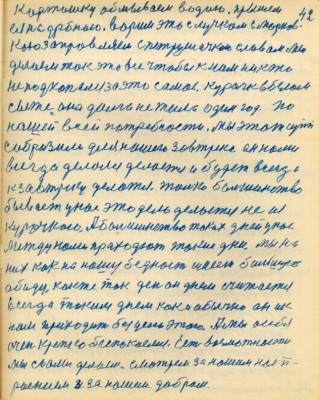 42
Картошку обмываем водою, крошем
ея надробною, варим это с лучком с морков-
кою заправляем с петрушечкою словам мы
делаем так это все чтобы к нам никто
не подкопался за это самое. Курачка в белом
свете она долга не жила один год. По
нашей всей потребности. Мы этот суп
собразили для нашего завтрека он нами
всегда делали делается и будет всегда
к завтрику делатся. толко большинство
бывает у нас это дело делается не из
курочкою. А большинство таких дней у нас
между нами праходют такие дни. Мы на
них как на нашу бедност имеем большую
обиду, как те так ден он днем считается
всегда таким днем как и обычно он ик
нам приходит без дела этаво. А мы о себя
очен крепко беспокоемся. Ест возмотности
мы с вами делаем. смотрем за нашим нас т-
раением и за нашим добрам.